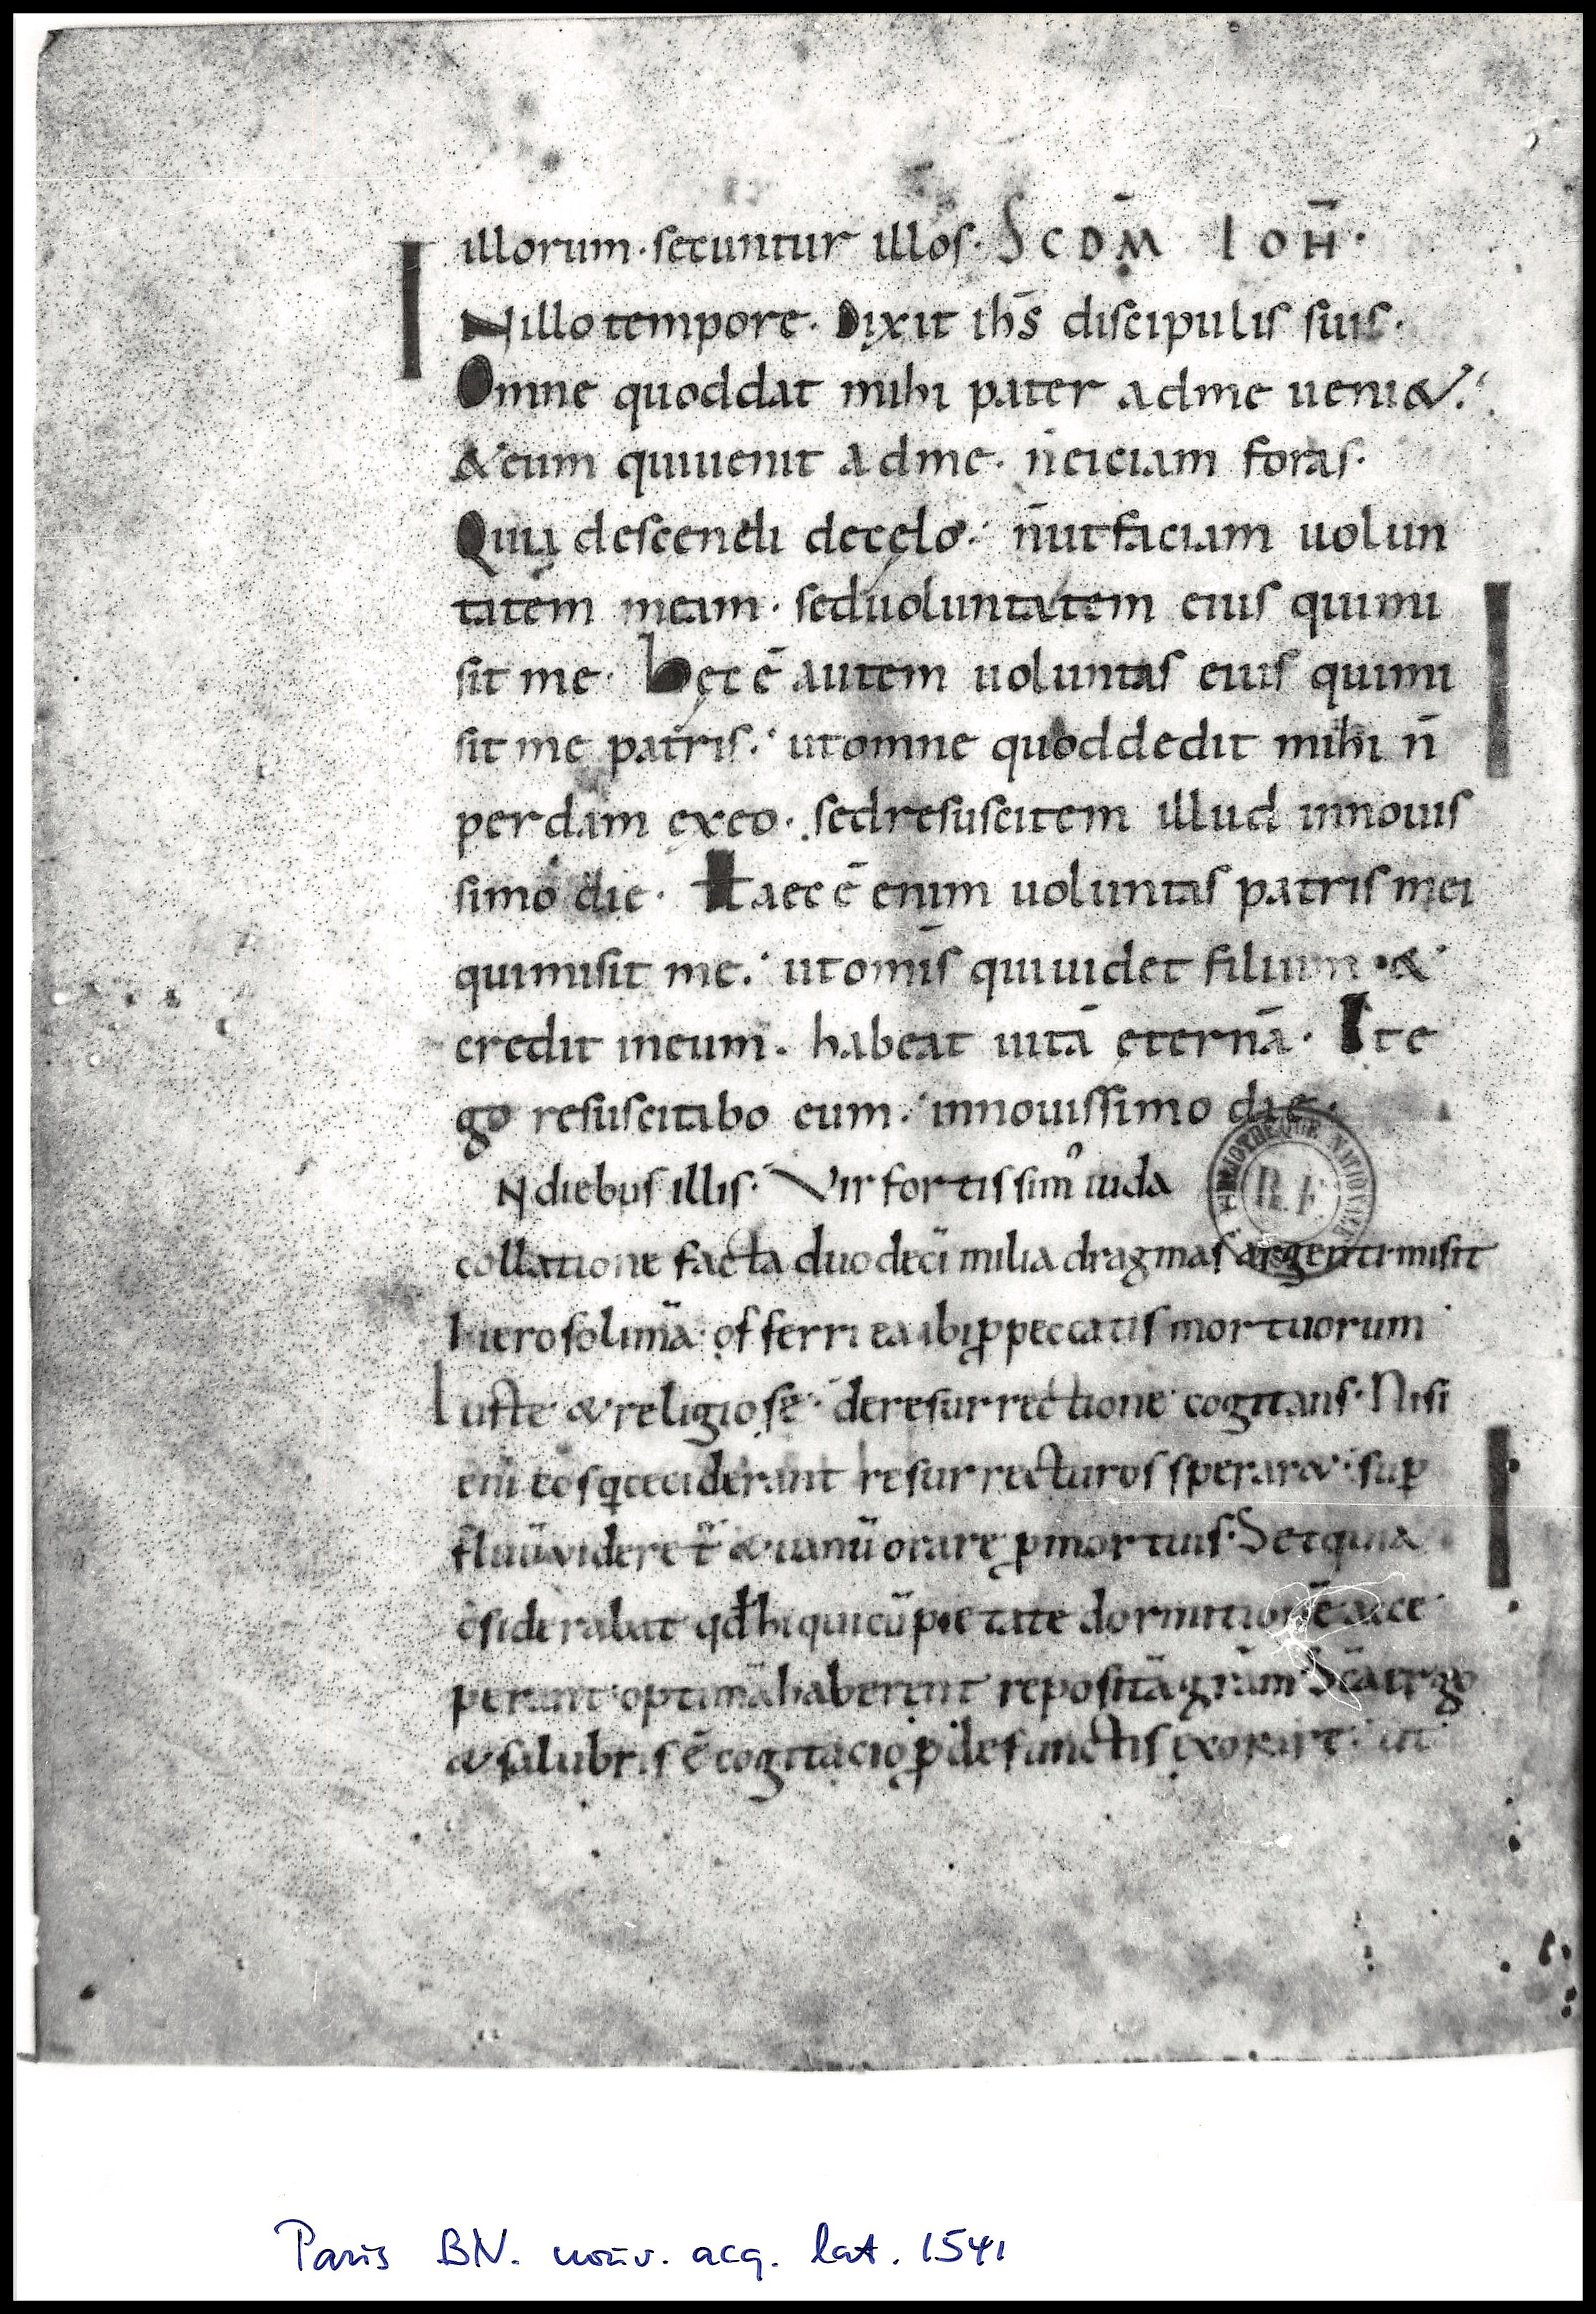 illorum · secuntur illos · Scdm̄ Ioh̄ ·
IN illo tempore · Dixit ih̄s discipulis suis ·
Omne quoddat mihi pater adme ueni&
& eum quiuenit adme · n̄ eiciam foras ·
Quia descendi decęlo · n̄ utfaciam uolun
tatem meam · seduoluntatem eius quimi
sit me · hęc ē autem uoluntas eius quimi
sit me patris · utomne quoddedit mihi n̄
perdam exeo · sedresuscitem illud innouis
simo die · Haec ē enim uoluntas patris mei
quimisit me · utomīs quiuidet filium · &
credit ineum · habeat uitā ęternā · Ite
go resuscitabo eum · innouissimo die ·
N diebus illis · Vir fortissim' iuda
collatione facta duodecī milia dragmas argenti misit
hierosolimā · offerri ea ibi ꝓ peccatis mortuorum
Iuste & religiose · deresurrectione cogitans · Nisi
enī eos q̄ ceciderant resurrecturos sperar& · sup̄
fluū uider&̄ & uanū orare ꝓ mortuis · Set quia
c̄siderabat qđ hi qui cū pietate dormitionē acce
perant optimā haberent repositā grām Scā ergo
& salubris ē cogitacio ꝓ defunctis exorare · ut
BIBLIOTHÈQUE NATIONALE
R.F.
Paris BN. nouv. acq. lat. 1541